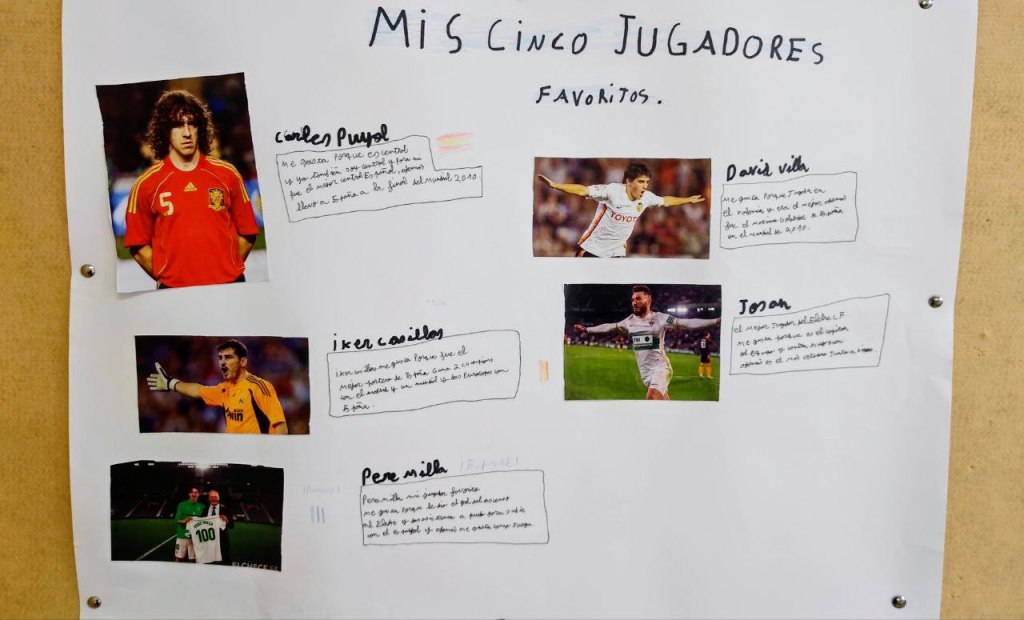 MIS CINCO JUGADORES
FAVORITOS.
Carles Puyol
Me gusta porque es central
y yo también soy central y para mi
fue el mejor central Español además
llevo a España a la final del Mundial 2010
David Villa
Me gusta porque jugaba en
el Valencia y era el mejor además
fue el maximo goleador de España
en el mundial de 2010.
5
TOYOTA
iker casillas
iker casillas me gusta porque fue el
mejor portero de España Gano 2
con el madrid y un mundial y dos Eurocopas con
España.
Josan
el mejor Jugador del Elche C.F
me gusta porque es el capitan
del equipo y
además es el más veterano junto a
Pere milla
Pere milla mi jugador favorito
me gusta porque le dio el gol del ascenso
al Elche y
con el Espanyol y además me gusta como juega
PERE MILLA
100
ELCHECF.ES